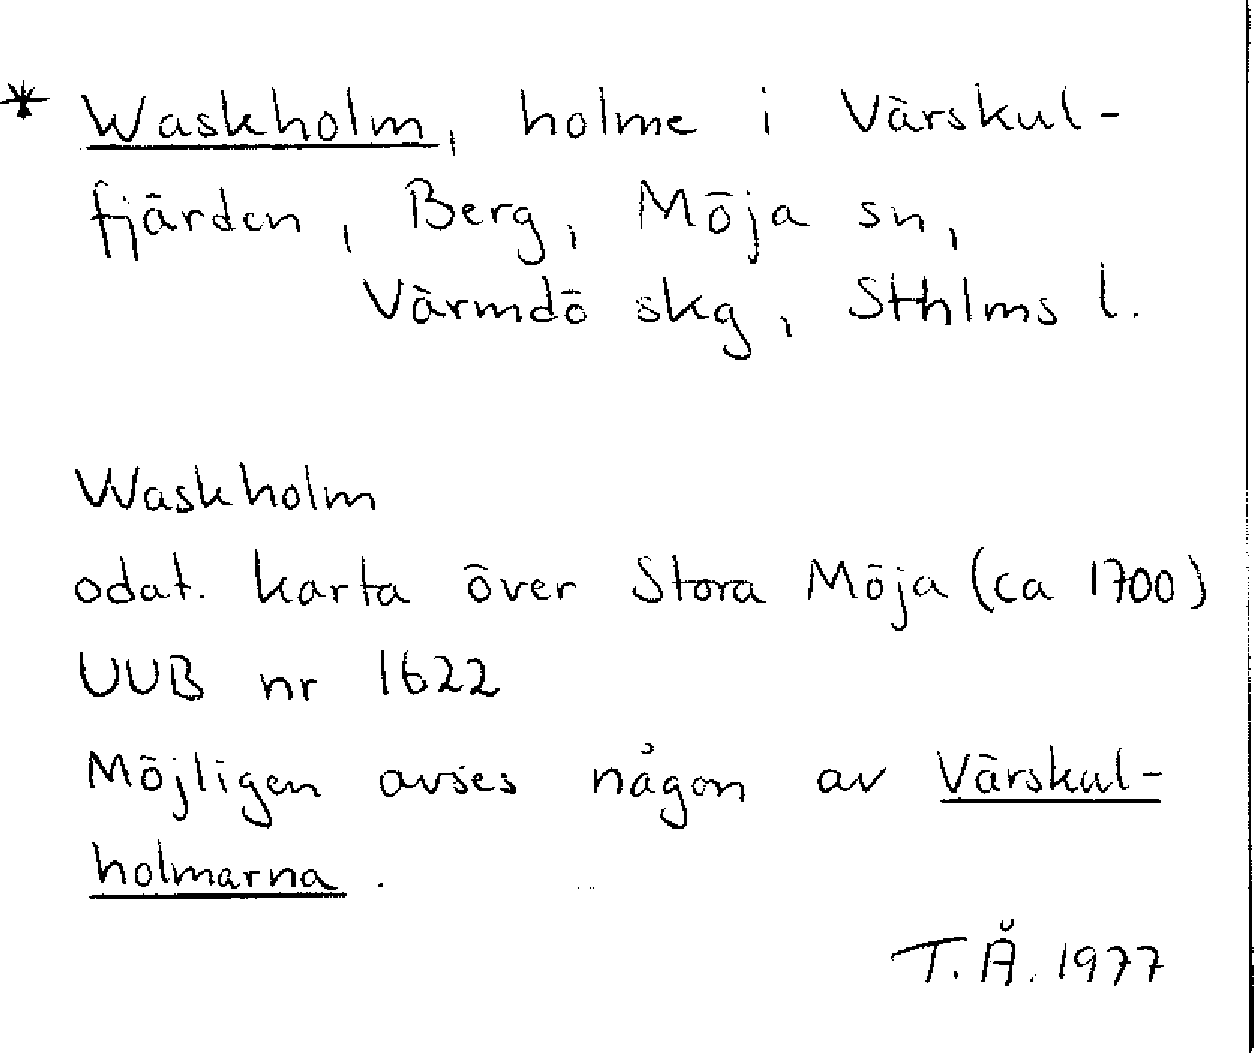 * Waskholm, holme i Värskul-
fjärden, Berg, Möja sn,
Värmdö skg, Sthlms l.
Waskholm
odat. karta över Stora Möja (ca 1700)
UUB nr 1622
Möjligen avses någon av Värskul-
holmarna.
T.Å. 1977